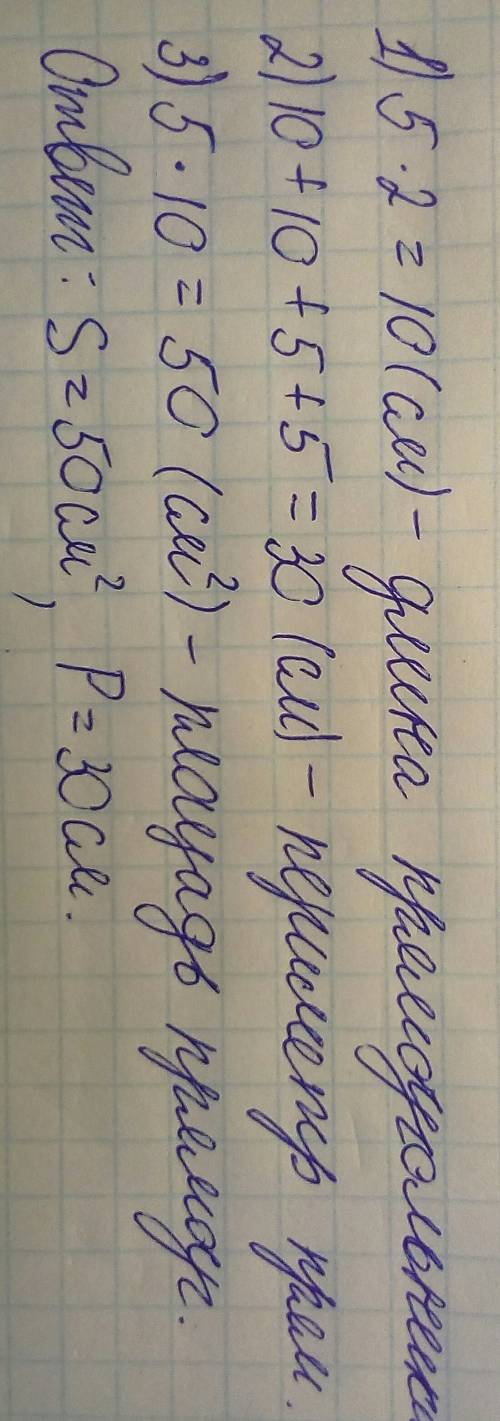 1) 5 · 2 = 10 (см) - длина прямоугольник
2) 10 + 10 + 5 + 5 = 30 (см) - периметр прям.
3) 5 · 10 = 50 (см²) - площадь прямоуг.
Ответ: S = 50 см², P = 30 см.